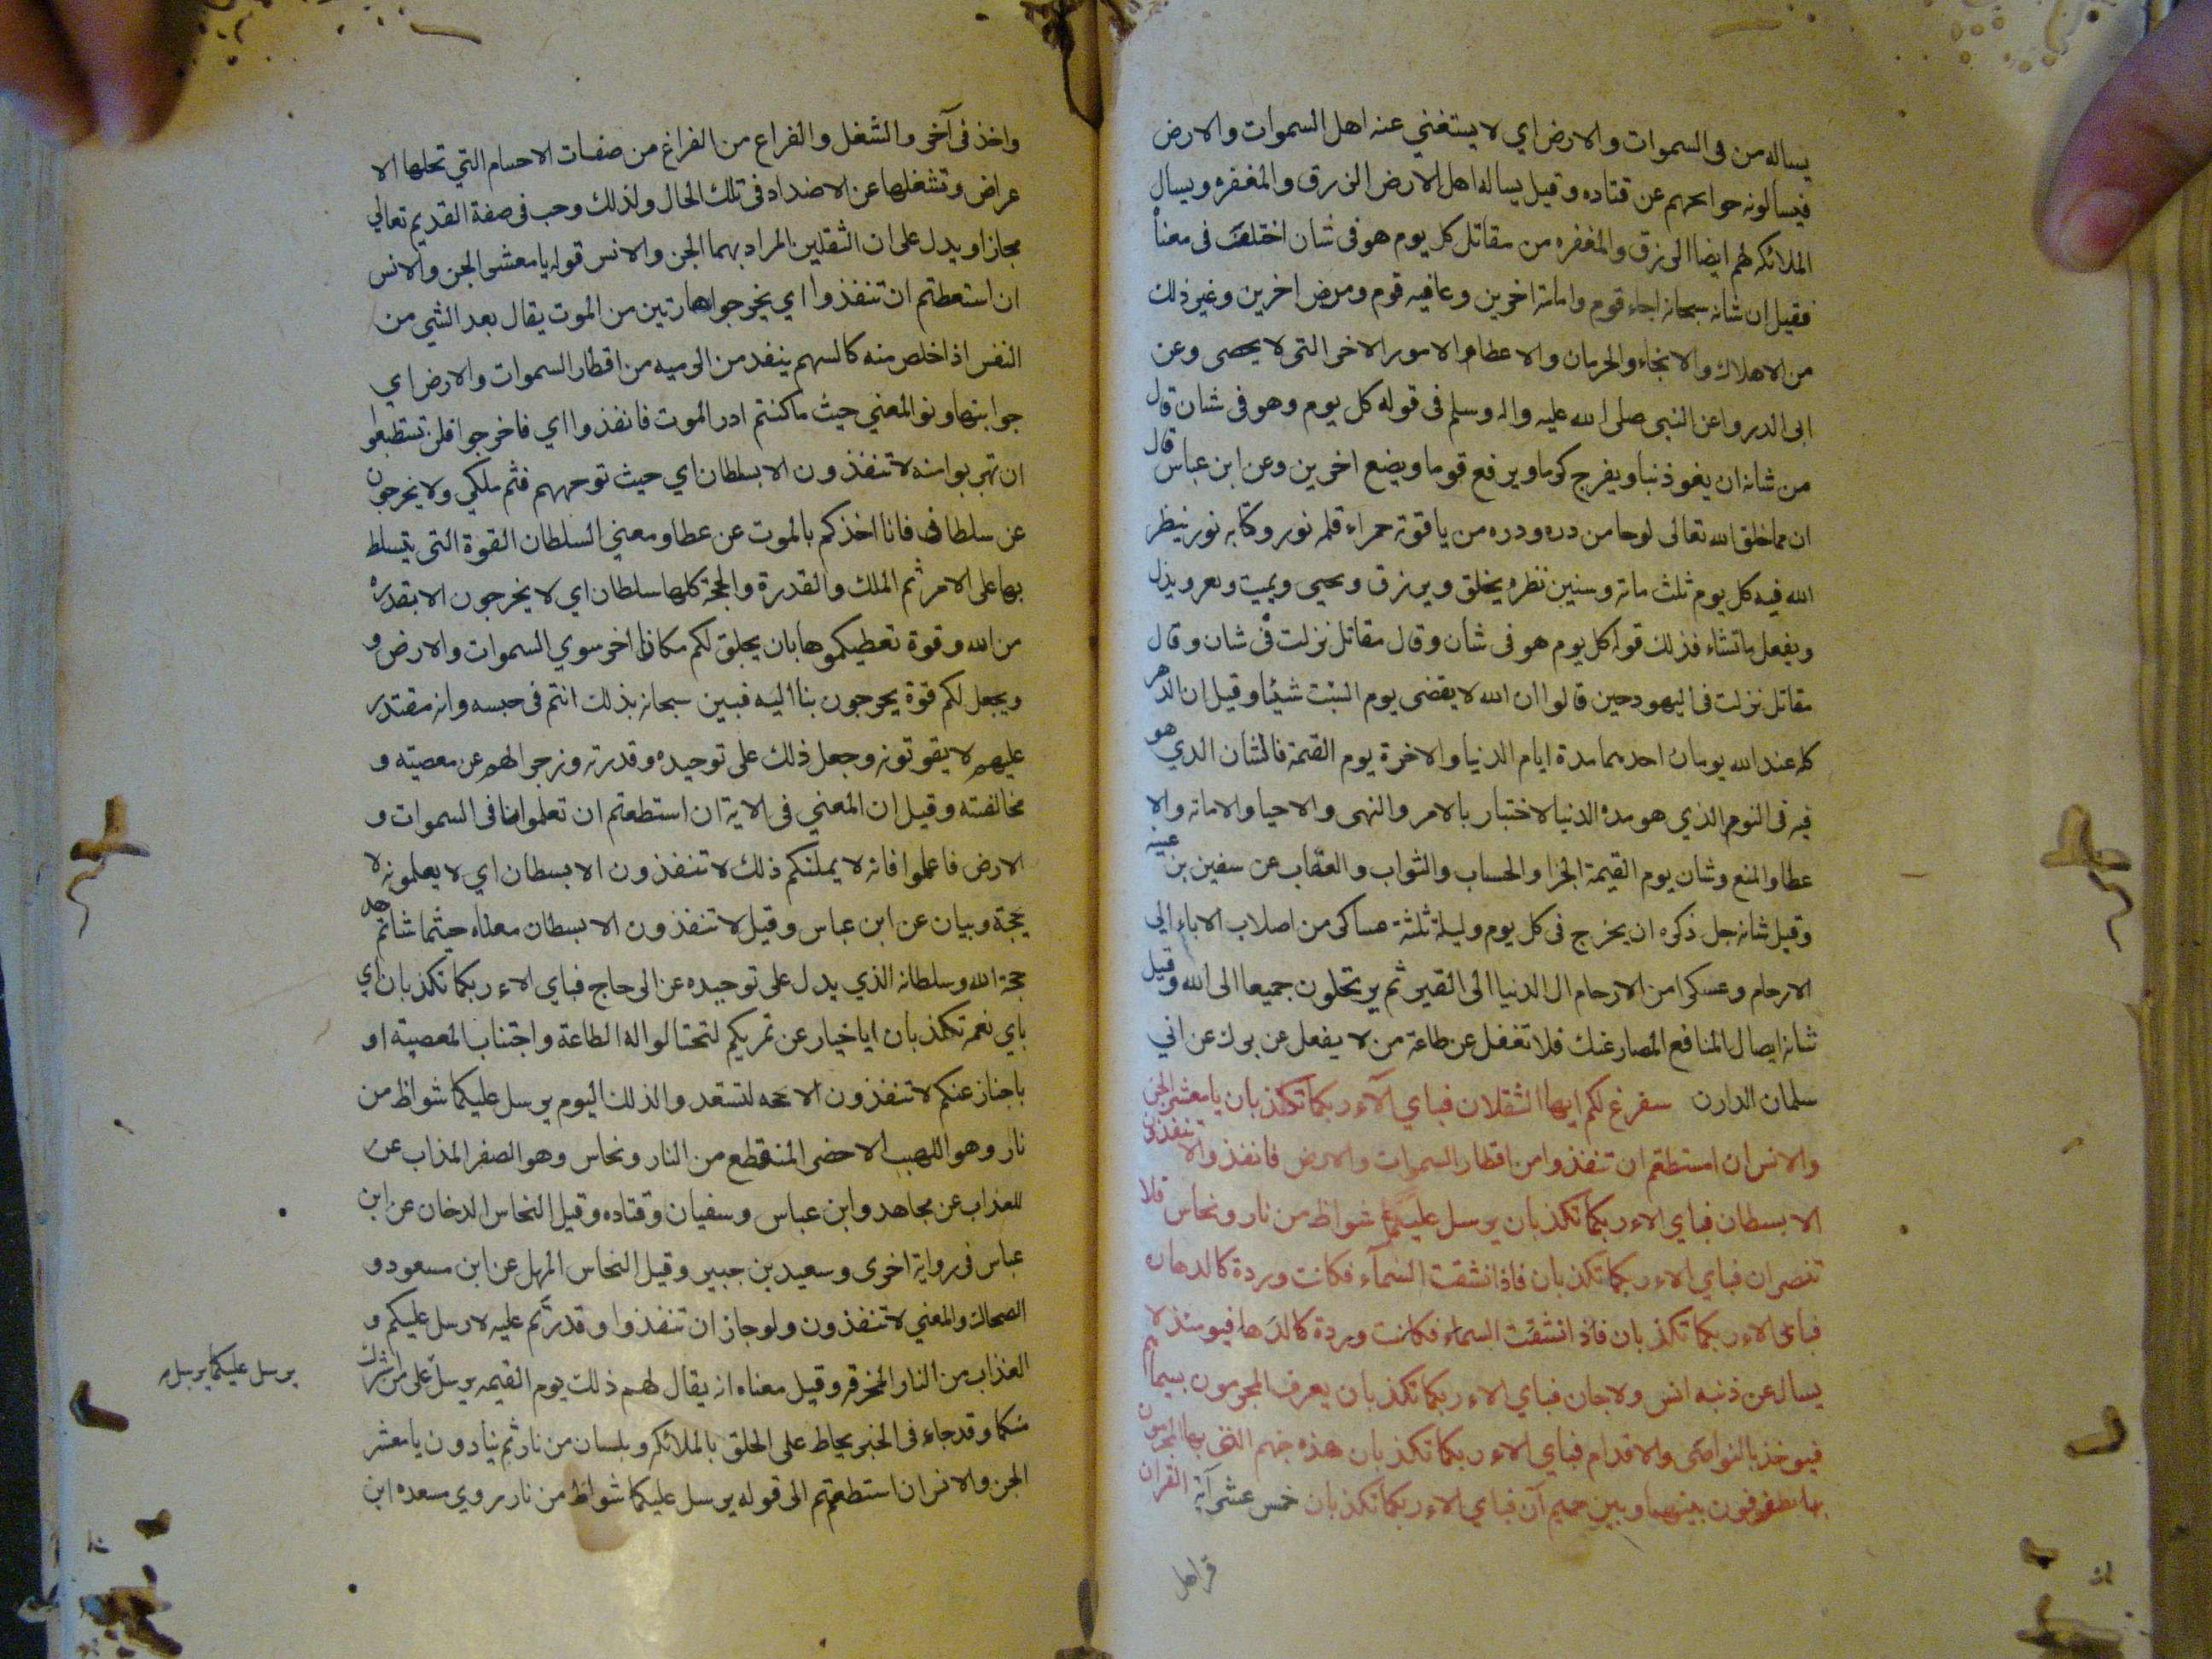 يساله من فى السموات والارض اي لا يستغني عنه اهل السموات والارض
فيسالونه حوايجهم عن قتاده وقيل يساله اهل الارض الرزق والمغفره ويسال
الملائكه لهم ايضا الرزق والمغفره من مقاتل كل يوم هو فى شان اختلف فى معناْ
فقيل ان شانه سبحانه احياء قوم واماتة اخرين وعافيه قوم ومرض اخرين وغير ذلك
من الاهلاك والانجاء والحرمان والاعطاء والامور الاخر التى لا يحصى وعن
ابى الدرواعن النبى صلى الله عليه واله وسلم فى قوله كل يوم وهو فى شان قال
من شانه ان يغو ذنبا ويفرج كوما ويرفع قوما ويضع اخرين وعن ابن عباس قال
ان مما خلق الله تعالى لوحا من دره ودره من ياقوتة حمراء قلمه نور وكتابه نور ينظر
الله فيه كل يوم ثلث ماتة وستين نظره يخلق ويرزق ويحيى ويميت ويعز ويذل
ويفعل ما تشاء فذلك قوله كل يوم هو فى شان وقال مقاتل نزلت فى شان وقال
مقاتل نزلت فى اليهود حين قالوا ان الله لا يقضى يوم السبت شيئا وقيل ان الدهر
كله عند الله يومان احدهما مدة ايام الدنيا والاخرة يوم القيمة فالشان الذي هو
فيه فى النوم الذي هو مده الدنيا الاختبار بالامر والنهى والاحيا والاماته والا
عطا والمنع وشان يوم القيمة الجزا والحساب والثواب والعقاب عن سفين بن عينه
وقيل شانه جل ذكره ان يخرج فى كل يوم وليلة ثلثة عساكر من اصلاب الاباء الي
الارحام وعسكرا من الارحام ال الدنيا الى القبر ثم يرتحلون جميعا الى الله وقيل
شانه ايصال المنافع المضار عنك فلا تغفل عن طاعة من لا يفعل عن برك عن اني
سلمان الدارن سفرغ لكم ايها الثقلان فباي آلآء ربكما تكذبان يا معشر الجن
والانس ان استطعتم ان تنفذوا من اقطار السموات والارض فانفذوا لا تنفذون
الا بسطان فباي الاء ربكما تكذبان يرسل عليكما شواظ من نار ونحاس فلا
تنصران فباي الاء ربكما تكذبان فاذا نشقت السمآء فكانت وردة كالدهان
فباي الاء ربكما تكذبان فاذ انشقت السماء فكانت وردة كالدها فيومئذ لا
يسال عن ذنبه انس ولا جان فباي الاء ربكما تكذبان يعرف المجرمون بسيماهم
فيوخذ بالنواصى والاقدام فباي الاء ربكما تكذبان هذه جهنم التى بها المجرمون
بينها وبين حميم آن فباي الاء ربكما تكذبان خمس عشر آية القران
قراهل
واخذ فى آخر والشغل والفراع من الفراغ من صفات الاحسام التي تحلها الا
عراض وتشغلها عن الاضداد فى تلك الحال ولذلك وجب فى صفة القديم تعالي
مجازا ويدل على ان الثقلين المراد بهما الجن والانس قوله يا معشر الجن والانس
ان استعطتم ان تنفذوا اي يخرجوا هارتين من الموت يقال بعد الشي من
النفس اذا خلص منه كالسهم ينفد من الرميه من اقطار السموات والارض اي
جوابنها ونو المعني حيث ما كنتم ادر الموت فانفذوا اي فاخرجوا فلن تستطيعوا
ان تهربوا منه لا تنفذون الا بسلطان اي حيث توجههم فثم ملكي ولا يخرجون
عن سلطانى فانا اخذكم بالموت عن عطا ومعني السلطان القوة التى يتسلط
بها على الامر ثم الملك والقدرة والحجة كلها سلطان اي لا يخرجون الا بقدرة
من الله وقوة تعطيكموها بان يخلق لكم مكانا اخر سوي السموات والارض و
ويجعل لكم قوة يخرجون بنا اليه فبين سبحانه بذلك انتم فى حبسه وانه مقتدر
عليهم لا يقوتونه وجعل ذلك على توحيده وقدرته وزجرا لهم عن معصيته و
مخالفته وقيل ان المعني فى الاية ان استطعتم ان تعلموا ما فى السموات و
الارض فاعلموا فانه لا يملنكم ذلك لا تنفذون الا بسطان اي لا يعلمونه لا
بحجة وبيان عن ابن عباس وقيل لا تنفذون الا بسطان معناه حيثما شاتم
حجة الله وسلطانه الذي يدل على توحيده عن الزجاج فباي الاء ربكما تكذبان اي
باي نعمه تكذبان اياخبار عن تحريكم لتحتالوا له الطاعة واجتناب المعصيته او
باخباز عنكم لا تنفذون الا بحجه لتستعدوا لذلك اليوم يرسل عليكما شواظ من
نار وهو اللهب الاحضر المنقطع من النار ونحاس وهو الصفر المذاب عن
للعذاب عن مجاهد وابن عباس وسفيان وقتاده وقيل النحاس الدخان عن ابن
عباس فى رواية اخرى وسعيد بن جبير وقيل النحاس المهل عن ابن مسعود و
الضحاك والمعني لا تنفذون ولو جاز ان تنفذوا وقدرتم عليه لارسل عليكم و
العذاب من النار المخرقه وقيل معناه انه يقال لهم ذلك يوم القيمه يرسل على من اشرك
يرسل عليكما يرسل
منكما وقد جاء فى الخبر يحاط على الخلق بالملائكه وبلسان من نار ثم ينادون يا معشر
الجن والانس ان استطعتم الى قوله يرسل عليكما شواظ من نار وروي مسعده ابن